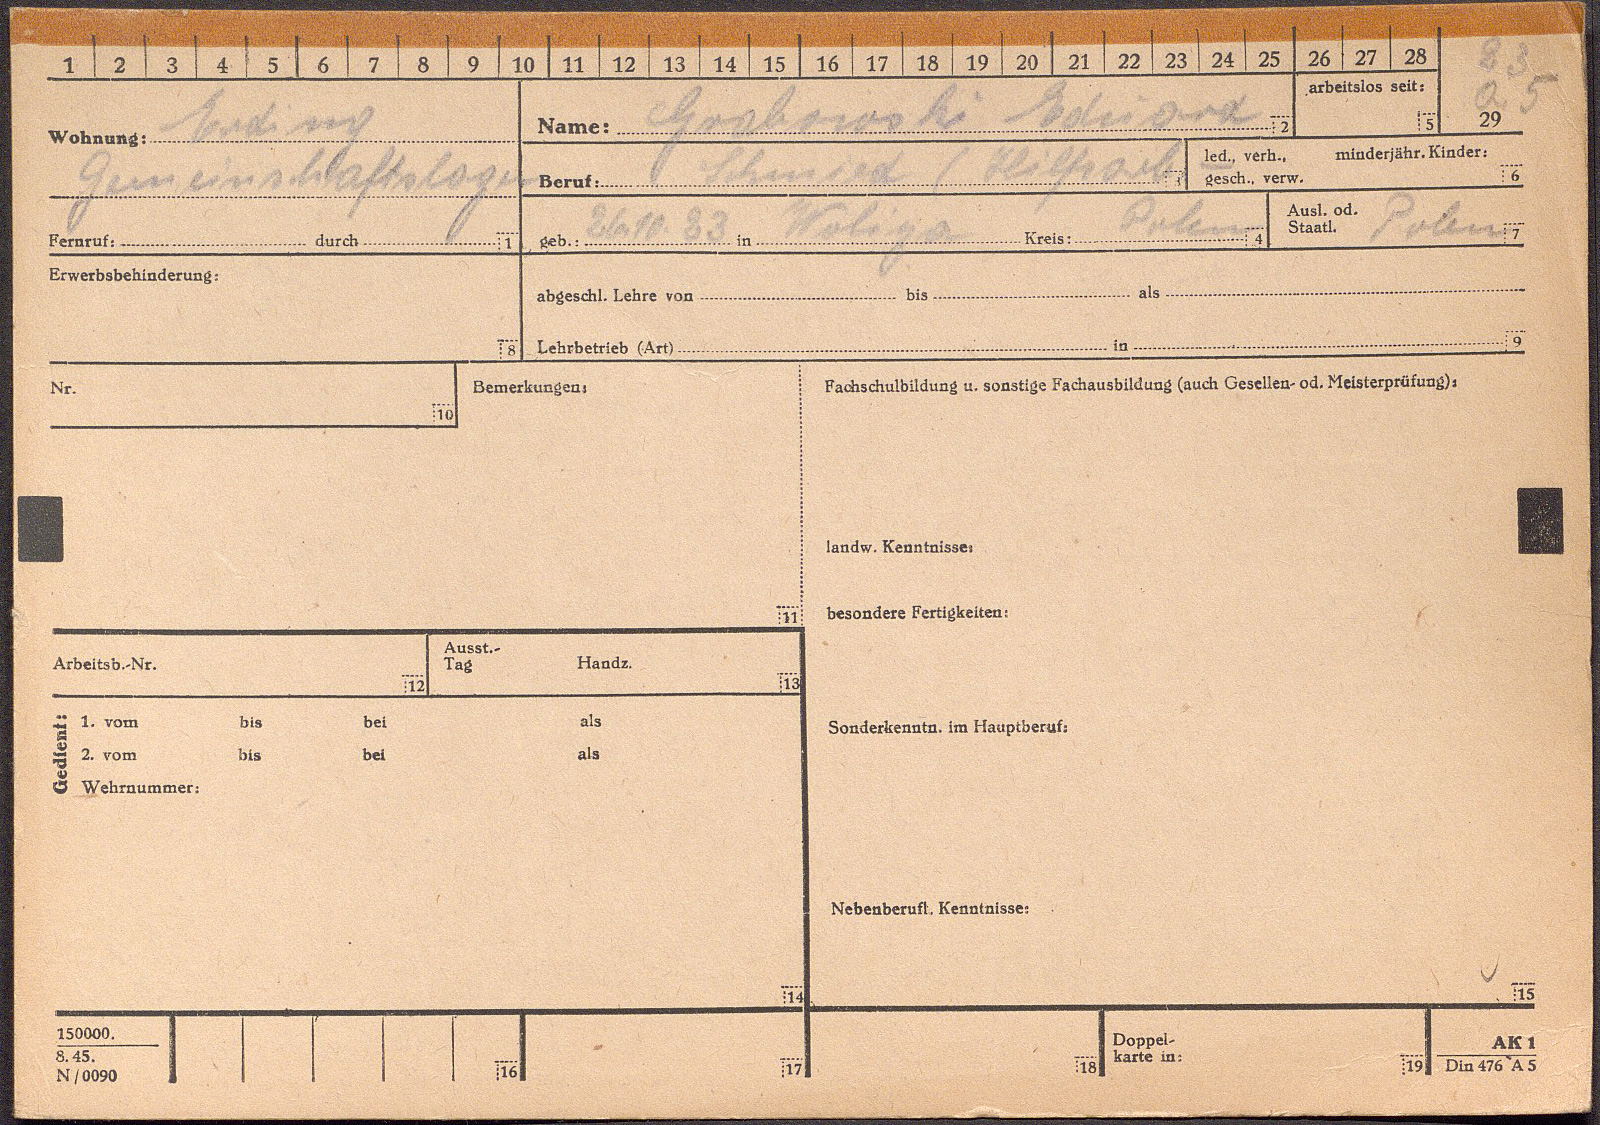 1 2 3 4 5 6 7 8 9 10 11 12 13 14 15 16 17 18 19 20 21 22 23 24 25 26 27 28
23
a 5
29
arbeitslos seit: 5
Wohnung: Erding
Gemeinschaftslager
Fernruf: durch 1
Name: Grabowski Eduard 2
Beruf: Schmied (Hilfsarb. 3
led., verh., minderjähr. Kinder:
gesch., verw. 6
geb.: 26.10.23 in Woliga Kreis: Polen 4
Ausl. od.
Staatl. Polen 7
Erwerbsbehinderung:
8
abgeschl. Lehre von bis als
Lehrbetrieb (Art) in 9
Nr.
10
Bemerkungen:
11
Fachschulbildung u. sonstige Fachausbildung (auch Gesellen- od. Meisterprüfung):
landw. Kenntnisse:
besondere Fertigkeiten:
Sonderkenntn. im Hauptberuf:
Nebenberufl. Kenntnisse:
15
Arbeitsb.-Nr. 12
Ausst.-
Tag Handz. 13
Gedient:
1. vom bis bei als
2. vom bis bei als
Wehrnummer:
14
150000.
8. 45.
N/0090
16
17
18
Doppel-
karte in: 19
AK 1
Din 476 A 5